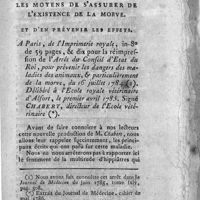 LES MOYENS DE S'ASSURER DE
L'EXISTENCE DE LA MORVE.
ET D'EN PRÉVENIR LES EFFETS.
A Paris, de l'Imprimerie royale, in-8°
de 59 pages, & dix pour la réimpres-
sion de l'Arrêt du Conseil d'Etat du
Roi, pour prévenir les dangers des mala-
dies des animaux, & particulièrement
de la morve, du 16 juillet 1784.
Délibéré à l'Ecole royale vétérinaire
d'Alfort, le premier avril 1785. Signé
CHABERT, directeur de l'Ecole vété-
rinaire (*).
Avant de faire connoître à nos lecteurs
cette nouvelle production de M. Chabert, nous
allons leur rappeler succinctement, les princi-
paux ouvrages qui ont précédé le sien; le
le frommage de la multitude d'hippiatres qui
(*) Nous avons fait connoître cet arrêt dans le
Journal de Médecine de juin 1785, tome lxiv,
pag.
(*) Extrait du Journal de Médecine, cahier de
mai